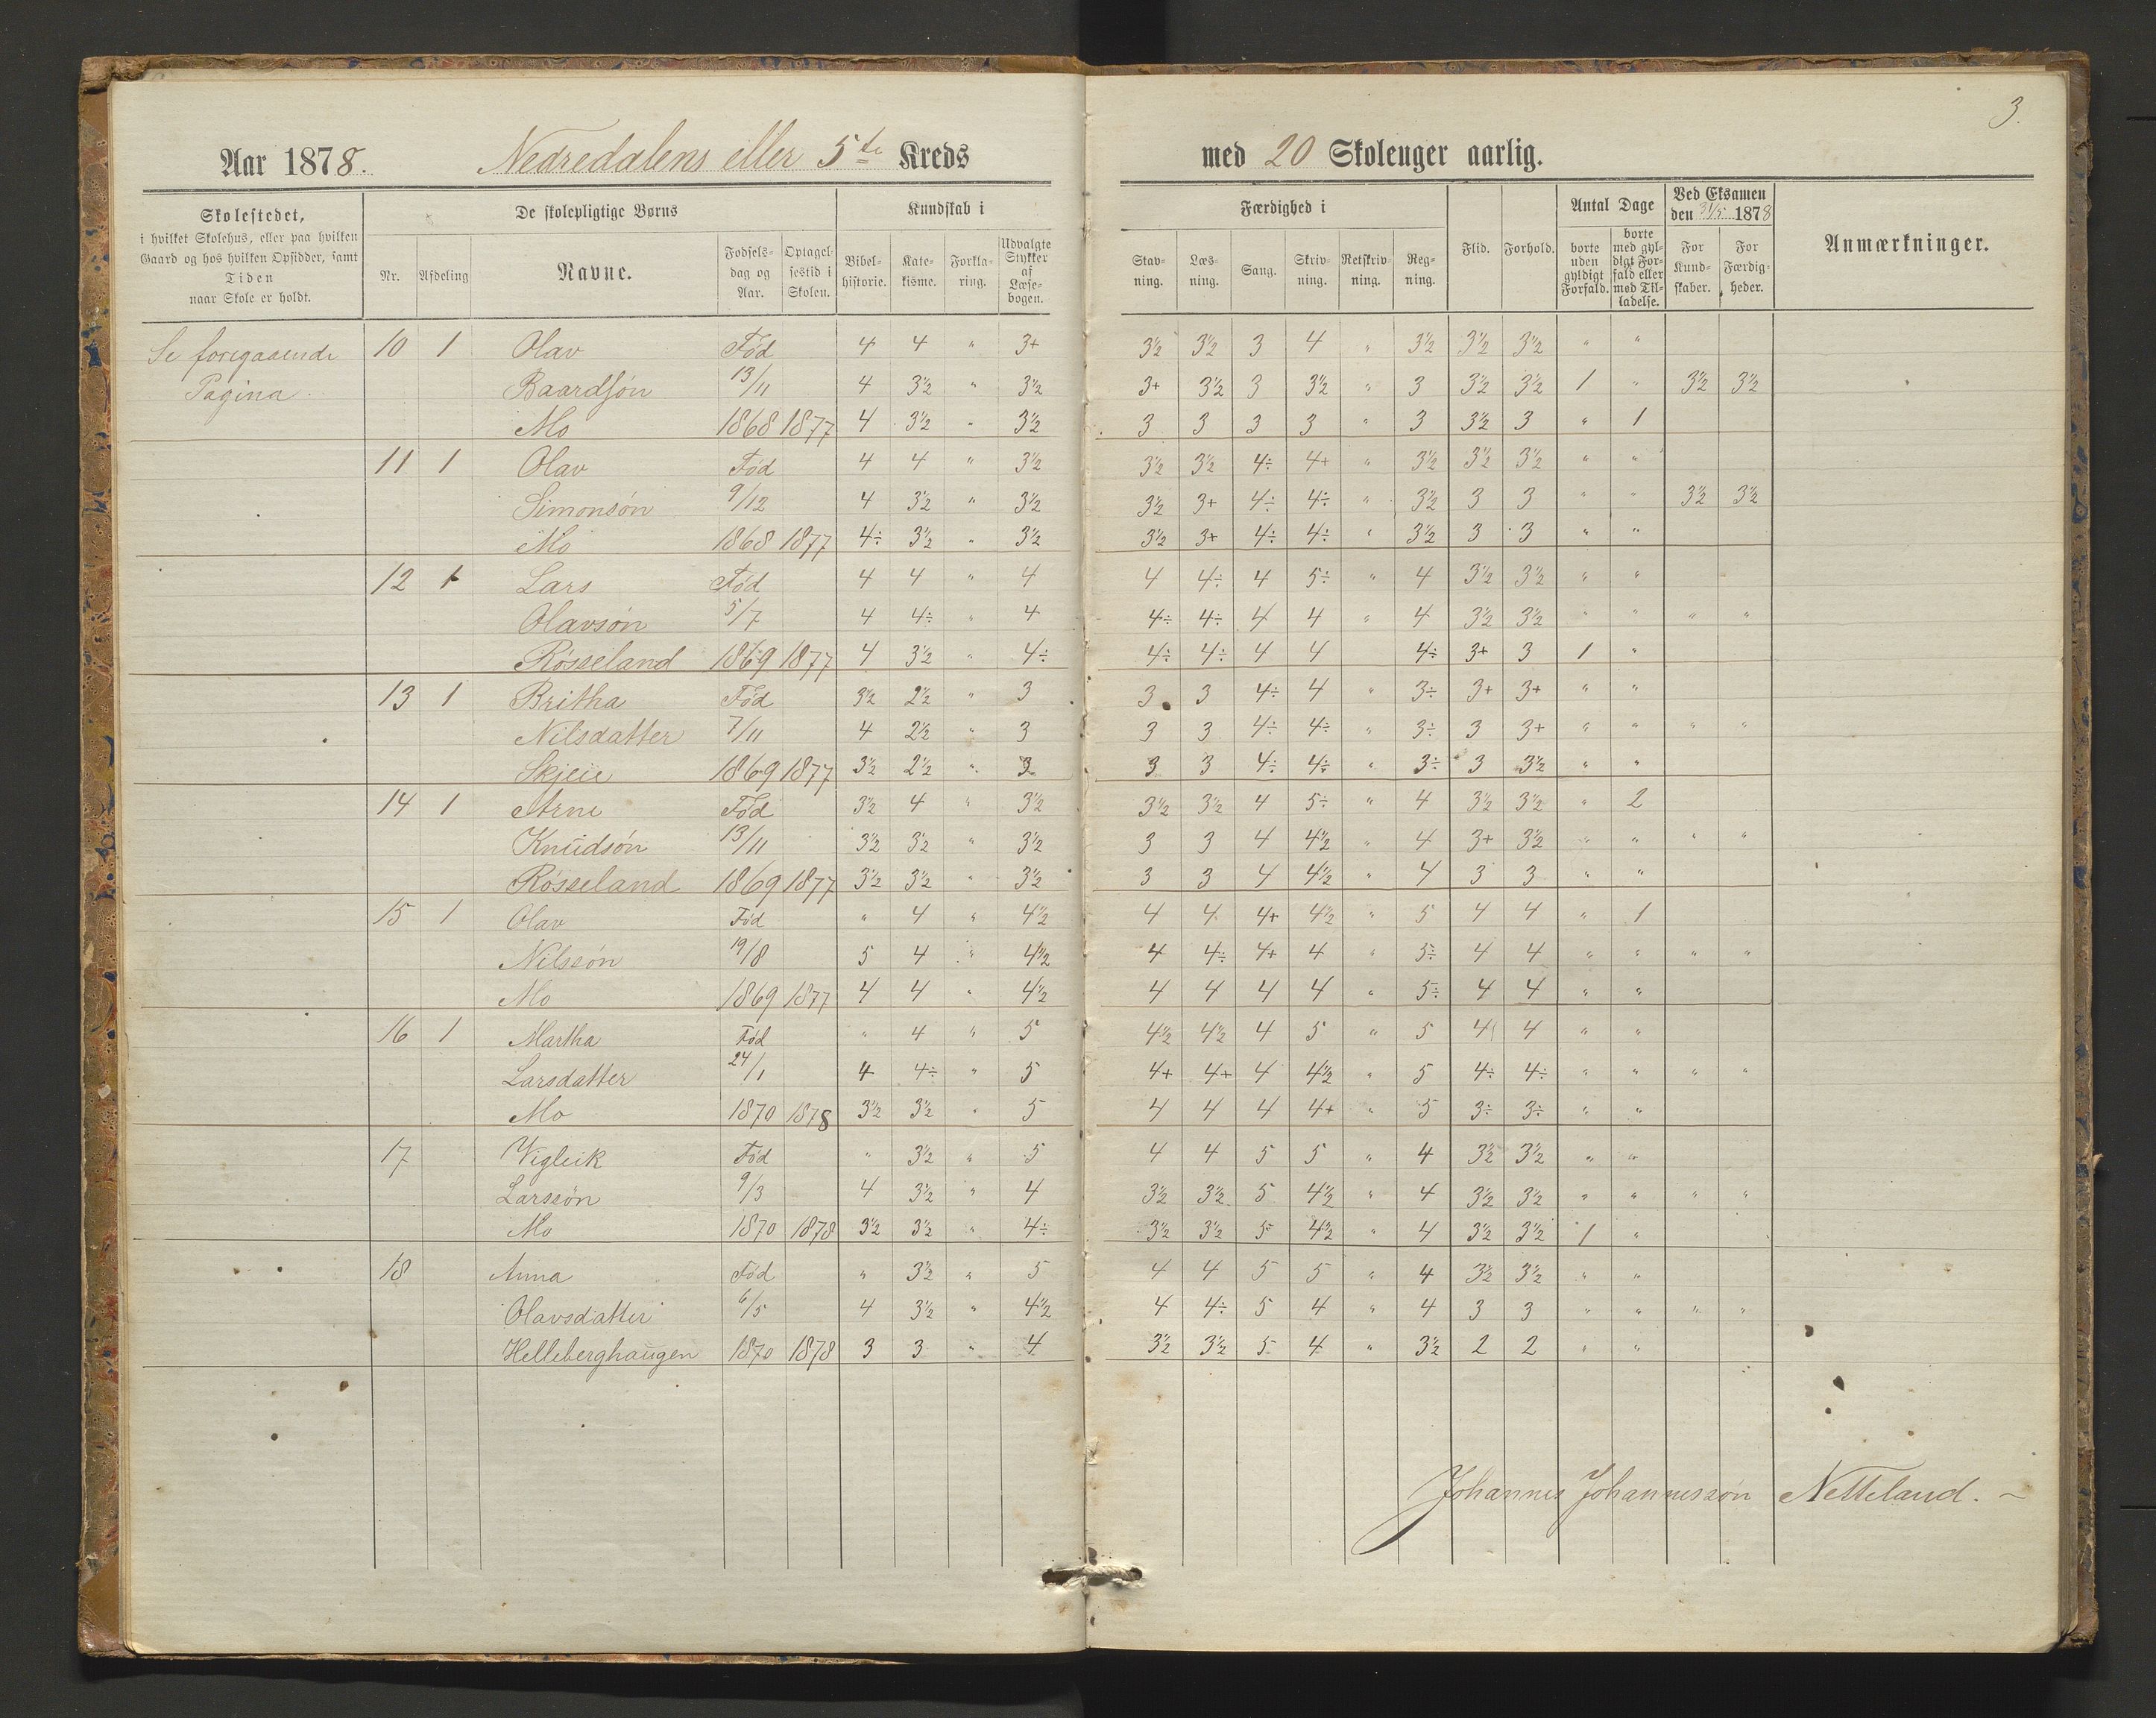 3.
Aar 1878. Nedredalens eller 5te Kreds med 20 Skoleuger aarlig.
Skolestedet, i hvilket Skolehus, eller paa hvilken Gaard og hos hvilken Opsidder, samt Tiden naar Skole er holdt. De skolepligtige Børns Kundskab i Færdighed i Flid. Forhold. Antal Dage Ved Eksamen den 31/5 1878 Anmærkninger.
Nr. Afdeling Navne. Fødselsdag og Aar. Optagelsestid i Skolen. Bibelhistorie. Katekisme. Forklaring. Udvalgte Stykker af Læsebogen. Stavning. Læsning. Sang. Skrivning. Retskrivning. Regning. borte uden gyldigt Forfald. borte med gyldigt Forfald eller med Tilladelse. For Kundskaber. For Færdigheder.
Se foregaaende 10 1 Olav Fød 4 4 " 3+ 3½ 3½ 3 4 " 3½ 3½ 3½ " "
Pagina. Baardsøn 13/11 4 3½ " 3½ 3+ 3½ 3 3½ " 3 3½ 3½ 1 " 3½ 3½
Mo 1868 1877 4 3½ " 3½ 3 3 3 3 " 3 3½ 3 " 1
11 1 Olav Fød 4 4 " 3½ 3½ 3½ 4÷ 4+ " 3½ 3½ 3½ " "
Simonsøn 9/12 4 3½ " 3½ 3½ 3+ 4÷ 4÷ " 3½ 3 3 " " 3½ 3½
Mo 1868 1877 4÷ 3½ " 3½ 3½ 3+ 4÷ 4÷ " 3½ 3 3 " "
12 1 Lars Fød 4 4 " 4 4 4÷ 4 5÷ " 4 3½ 3½ " "
Olavsøn 5/7 4 4÷ " 4 4÷ 4÷ 4 4 " 4 3½ 3½ " " " "
Røsseland 1869 1877 4 3½ " 4÷ 4÷ 4÷ 4 4 4÷ 3+ 3 1 "
13 1 Britha Fød 3½ 2½ " 3 3 3 4÷ 4 " 3÷ 3+ 3+ " "
Nilsdatter 7/11 4 2½ " 3 3 3 4÷ 4÷ " 3÷ 3 3+ " " " "
Skjeie 1869 1877 3½ 2½ " 3 3 3 4÷ 4÷ " 3÷ 3 3½ " "
14 1 Arne Fød 3½ 4 " 3½ 3½ 3½ 4 5÷ " 4 3½ 3½ " 2
Knudsøn 13/11 3½ 3½ " 3½ 3 3 4 4½ " 4 3+ 3½ " " " "
Røsseland 1869 1877 3½ 3½ " 3½ 3 3 4 4½ " 4 3 3 " "
15 1 Olav Fød " 4 " 4½ 4 4 4+ 4½ " 5 4 4 " 1
Nilssøn 19/8 5 4 " 4½ 4 4÷ 4+ 4 " 5÷ 4 4 " " " "
Mo 1869 1877 4 4 " 4½ 4 4 4 4 " 5÷ 4 4 " "
16 1 Martha Fød " 4 " 5 4½ 4½ 4 5 " 5 4 4 " "
Larsdatter 24/1 4 4÷ " 5 4+ 4+ 4 4½ " 5 4÷ 4÷ " " " "
Mo 1870 1878 3½ 3½ " 5 4 4 4 4+ " 5 3÷ 3÷ " "
17 Vigleik Fød " 3½ " 5 4 4 5 5 " 4 3½ 3½ " "
Larssøn 9/3 4 3½ " 4 3½ 3½ 5 4½ " 4 3½ 3½ " " " "
Mo 1870 1878 3½ 3½ " 4÷ 3½ 3½ 5 4½ " 4 3½ 3½ 1 "
18 Anna Fød " 3½ " 5 4 4 5 5 " 4 3½ 3½ " "
Olavsdatter 6/5 4 3½ " 4½ 4 4÷ 5 4 " 4 3 3 " " " "
Helleberghaugen 1870 1878 3 3 " 4 3½ 3½ 5 4 " 3½ 2 2 " "
Johannes Johannessøn Netteland.